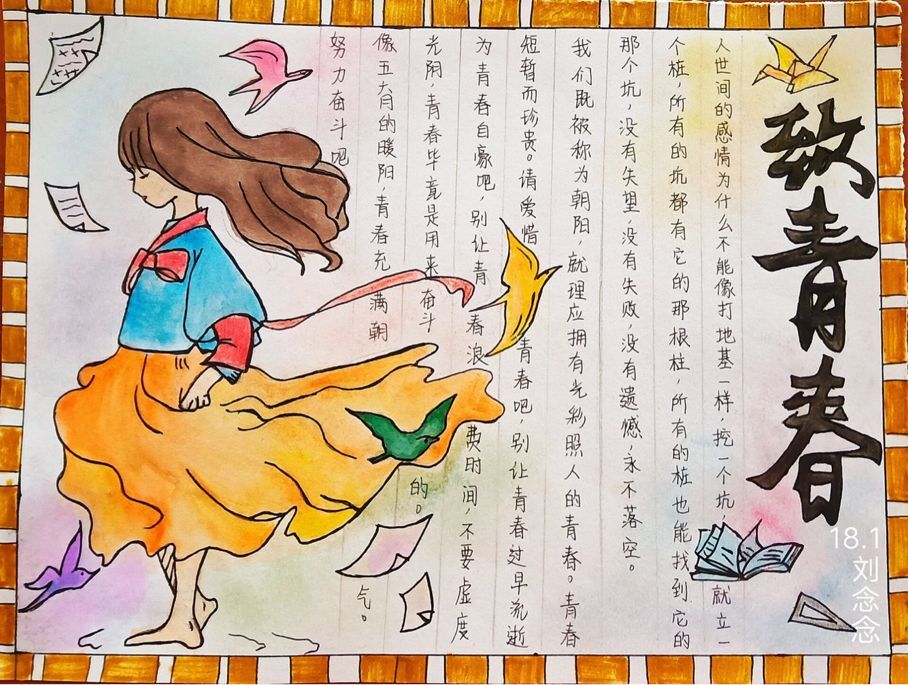 致青春
人世间的感情为什么不能像打地基一样,挖一个坑,就立一
个桩,所有的坑都有它的那根桩,所有的桩也能找到它的
那个坑,没有失望,没有失败,没有遗憾,永不落空。
我们既被称为朝阳,就理应拥有光彩照人的青春。青春
短暂而珍贵。请爱惜青春吧,别让青春过早流逝
为青春自豪吧,别让青春浪费时间,不要虚度
光阴,青春毕竟是用来奋斗的。
像五六月的暖阳,青春充满朝气。
努力奋斗吧
18.1
刘念念